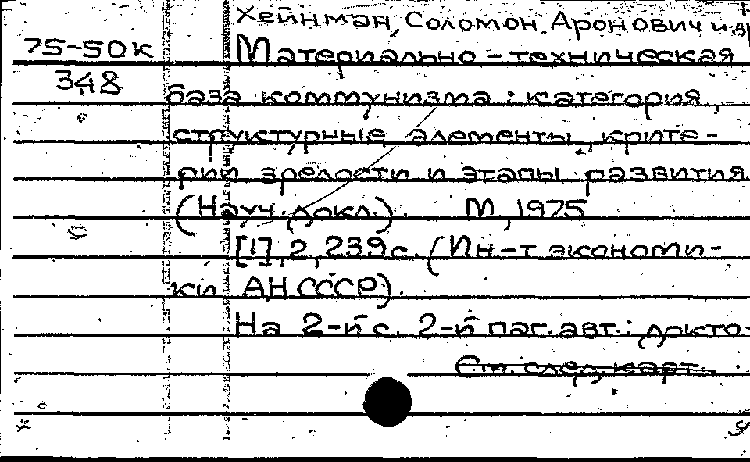 Хейнман, Соломон Аронович и др
75-50к Материально-техническая
348 база коммунизма: категория,
структурные элементы, крите-
рии зрелости и этапы развития
(Науч. докл.). М, 1975
[1], 2, 239 с. (Ин-т экономи-
ки АН СССР).
На 2-й с. 2-й паг. авт.: докто-
См. след. карт.